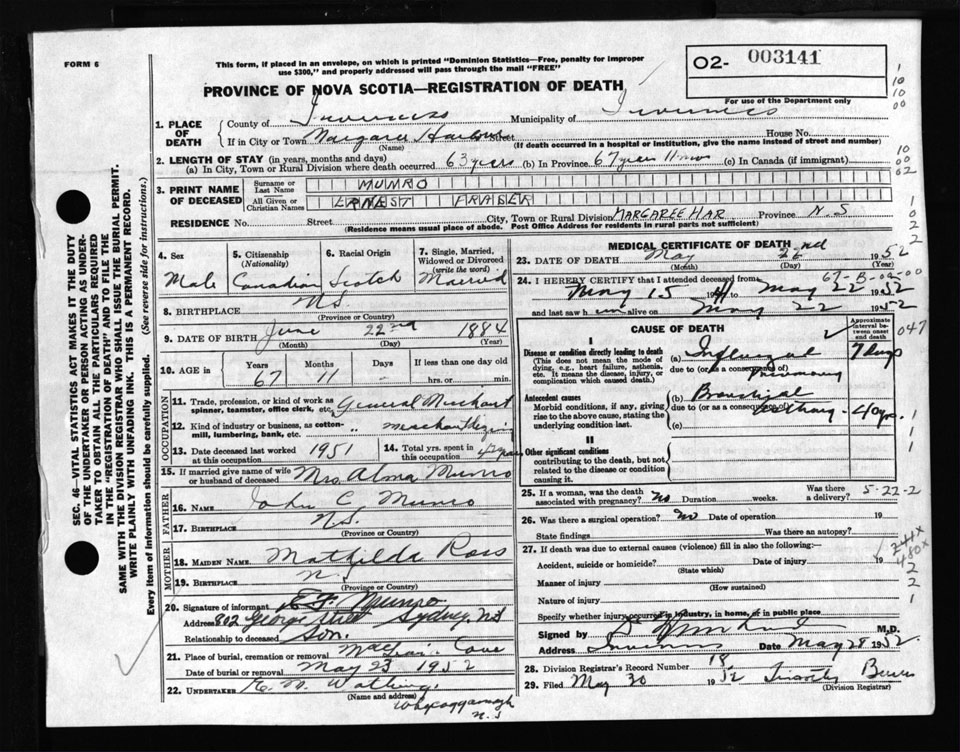 FORM 6
This form, if placed in an envelope, on which is printed "Dominion Statistics—Free, penalty for improper
use $300," and properly addressed will pass through the mail "FREE"
02- 003141
For use of the Department only
PROVINCE OF NOVA SCOTIA—REGISTRATION OF DEATH
1. PLACE OF DEATH
County of Inverness Municipality of Inverness
If in City or Town Margaree Harbour Street House No.
(Name) (If death occurred in a hospital or institution, give the name instead of street and number)
2. LENGTH OF STAY (in years, months and days)
(a) In City, Town or Rural Division where death occurred 63 years (b) In Province 67 years 11 mos (c) In Canada (if immigrant)
3. PRINT NAME OF DECEASED
Surname or Last Name MUNRO
All Given or Christian Names ERNEST FRASER
RESIDENCE No. Street City, Town or Rural Division MARGAREE HAR Province N.S
(Residence means usual place of abode. Post Office Address for residents in rural parts not sufficient)
4. Sex Male
5. Citizenship (Nationality) Canadian
6. Racial Origin Scotch
7. Single, Married, Widowed or Divorced (write the word) Married
8. BIRTHPLACE N.S.
(Province or Country)
9. DATE OF BIRTH June 22nd 1884
(Month) (Day) (Year)
10. AGE in Years 67 Months 11 Days - If less than one day old hrs. or min.
OCCUPATION
11. Trade, profession or kind of work as spinner, teamster, office clerk, etc. General Merchant
12. Kind of industry or business, as cotton-mill, lumbering, bank, etc. "
13. Date deceased last worked at this occupation 1951
14. Total yrs. spent in this occupation
15. If married give name of wife or husband of deceased Mrs. Alma Munro
FATHER
16. NAME John C Munro
17. BIRTHPLACE N.S.
(Province or Country)
MOTHER
18. MAIDEN NAME Mathilda Ross
19. BIRTHPLACE N.S
(Province or Country)
20. Signature of informant E F Munro
Address 802 George Street Sydney N.S
Relationship to deceased Son.
21. Place of burial, cremation or removal Cove
Date of burial or removal May 23 1952
22. UNDERTAKER
(Name and address)
Whycogomagh
N.S
MEDICAL CERTIFICATE OF DEATH
23. DATE OF DEATH May 22nd 1952
(Month) (Day) (Year)
24. I HEREBY CERTIFY that I attended deceased from 67-B-02-00
May 15 19 to May 22 1952
and last saw h im alive on May 22 1952
CAUSE OF DEATH
Approximate interval between onset and death
047
I
Disease or condition directly leading to death
(This does not mean the mode of dying, e.g., heart failure, asthenia, etc. It means the disease, injury, or complication which caused death.)
(a) Influenzal 7 days
due to (or as a consequence of) Pneumonia
Antecedent causes
Morbid conditions, if any, giving rise to the above cause, stating the underlying condition last.
(b) Bronchial
due to (or as a consequence of) Asthma - 40 yrs.
(c)
II
Other significant conditions
contributing to the death, but not related to the disease or condition causing it.
25. If a woman, was the death associated with pregnancy? No Duration weeks. Was there a delivery? 5-22-2
26. Was there a surgical operation? No Date of operation 19
State findings Was there an autopsy?
27. If death was due to external causes (violence) fill in also the following:—
Accident, suicide or homicide? Date of injury 19
(State which)
Manner of injury
(How sustained)
Nature of injury
Specify whether injury occurred in industry, in home, or in public place
241X
480X
Signed by M.D.
Address Inverness Date May 28 1952
28. Division Registrar's Record Number 18
29. Filed May 30 1952
(Division Registrar)
SEC. 46—VITAL STATISTICS ACT MAKES IT THE DUTY
OF THE UNDERTAKER OR PERSON ACTING AS UNDER-
TAKER TO OBTAIN ALL THE PARTICULARS REQUIRED
IN THE "REGISTRATION OF DEATH" AND TO FILE THE
SAME WITH THE DIVISION REGISTRAR WHO SHALL ISSUE THE BURIAL PERMIT.
WRITE PLAINLY WITH UNFADING INK. THIS IS A PERMANENT RECORD.
Every item of information should be carefully supplied. (See reverse side for instructions.)